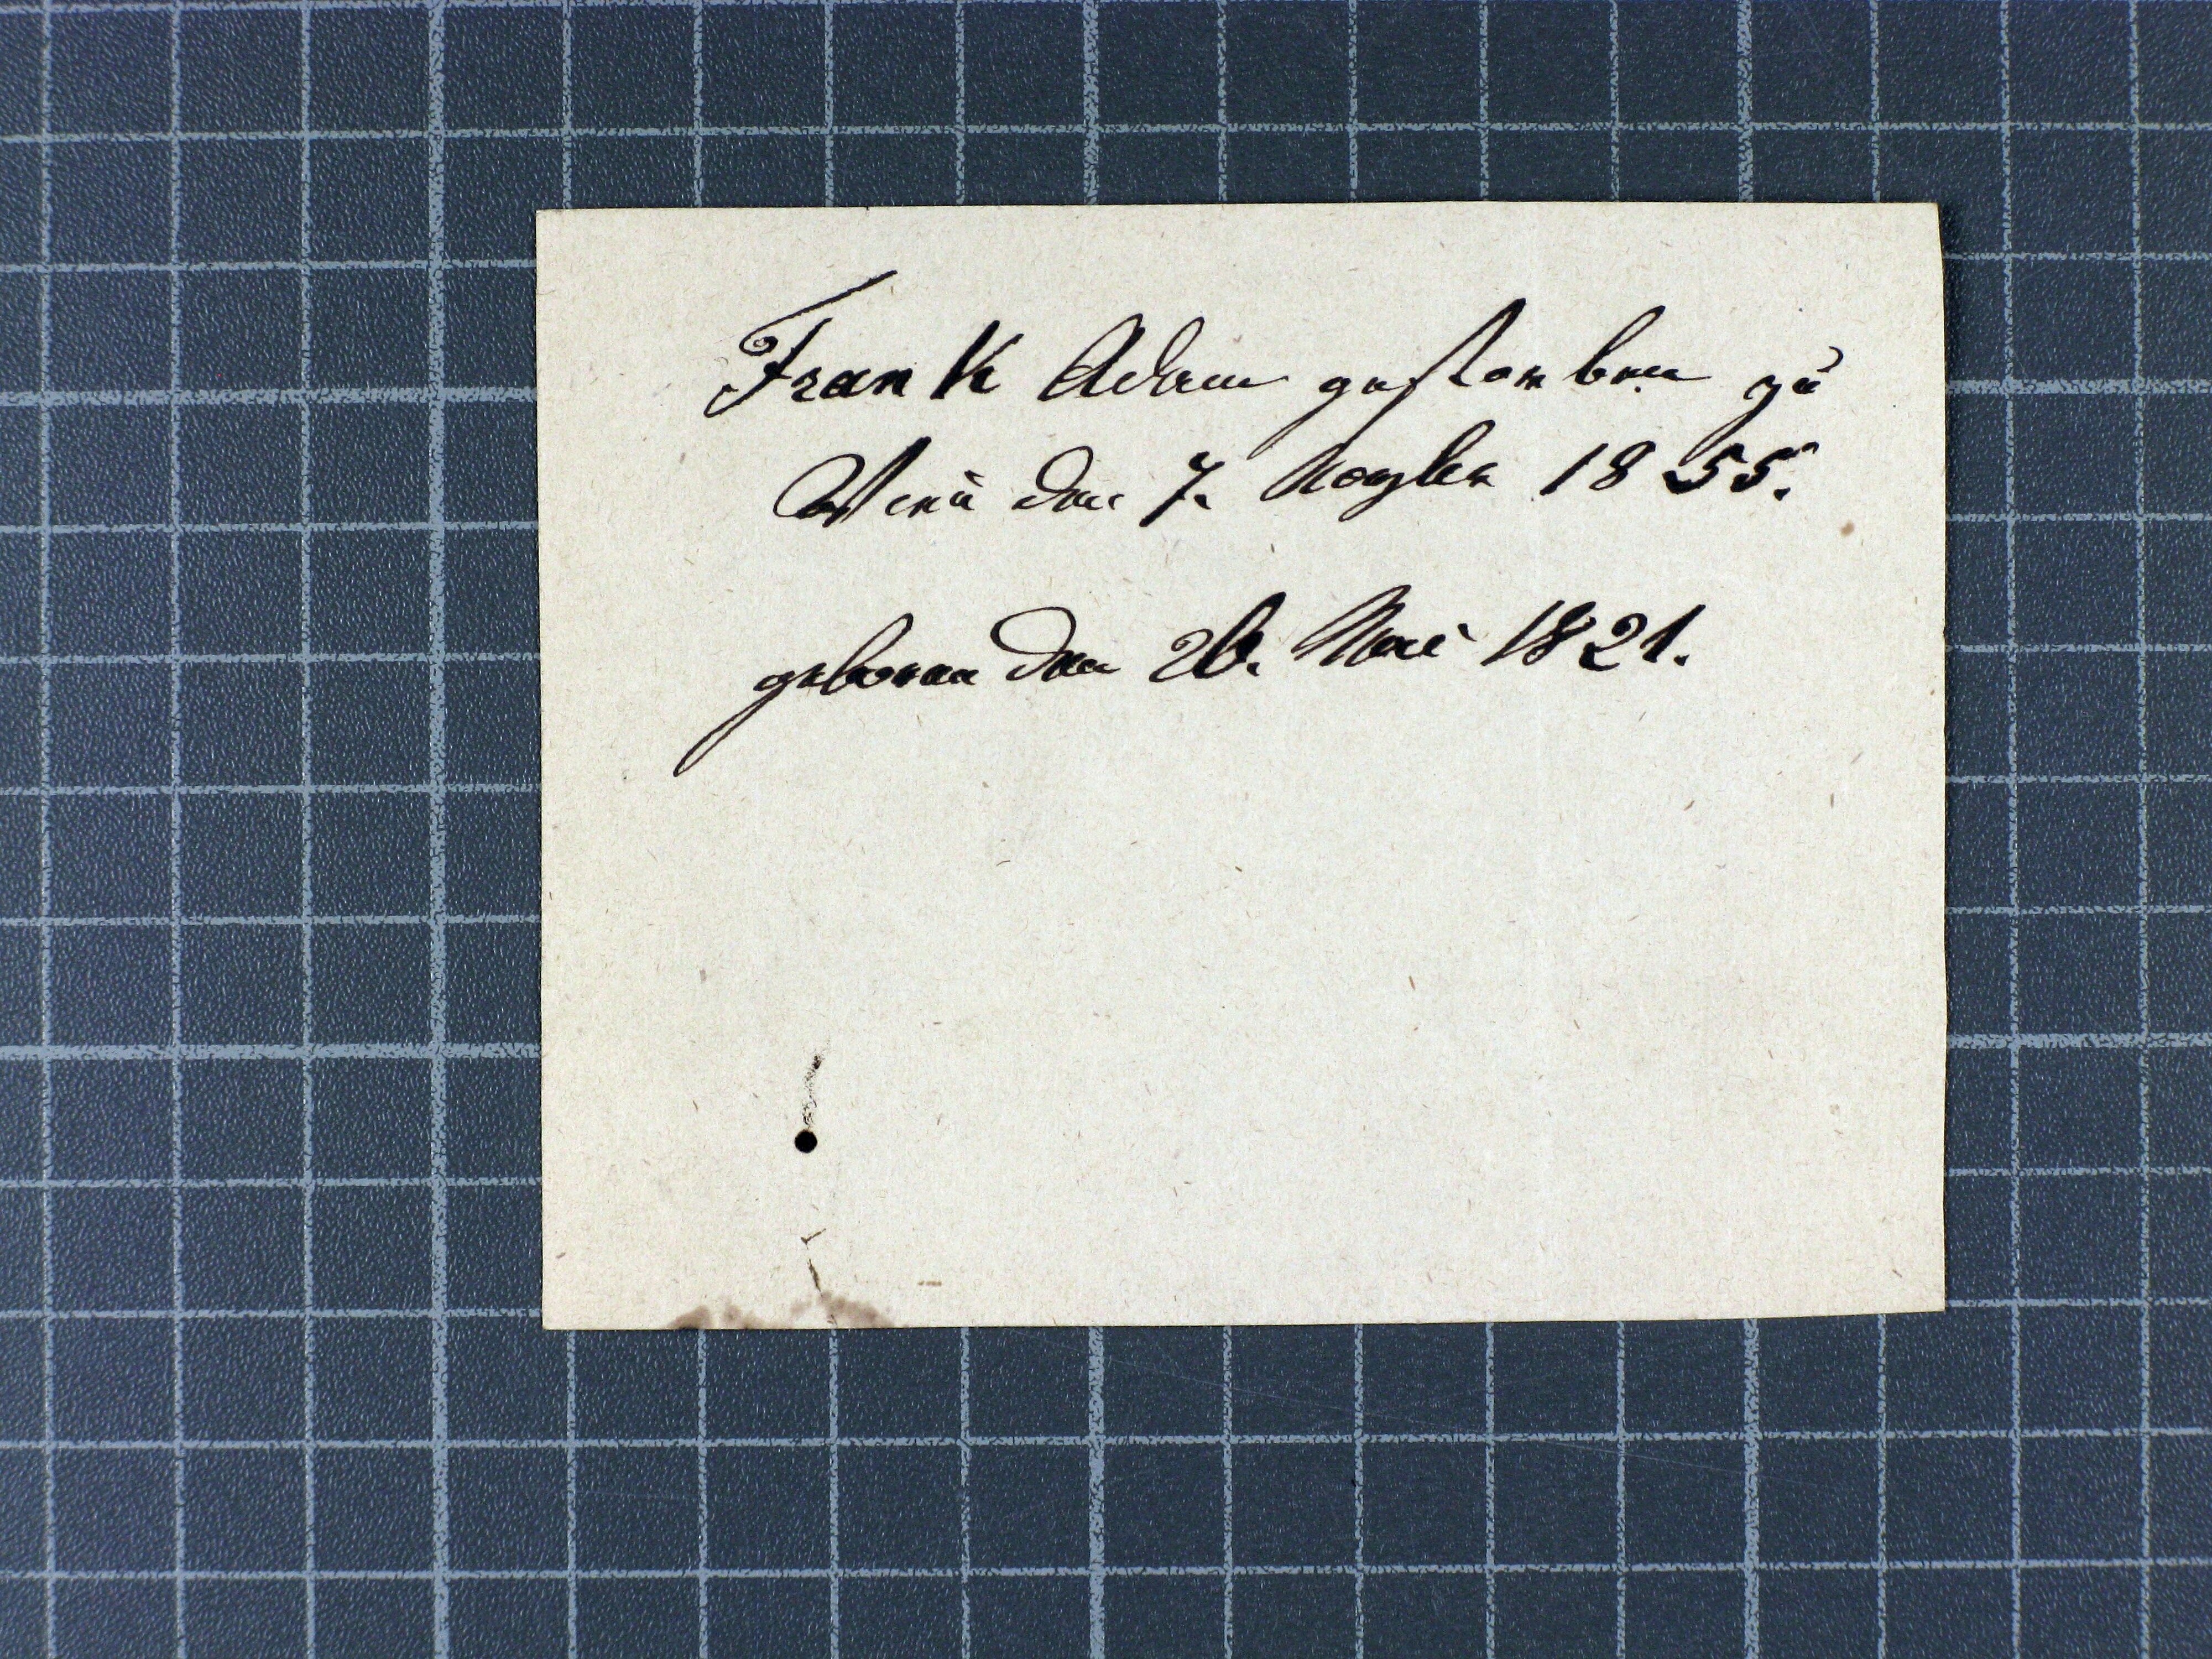 Frank Adam gestorben zu
den 7. Novber 1855.
geboren den 26. Mai 1821.